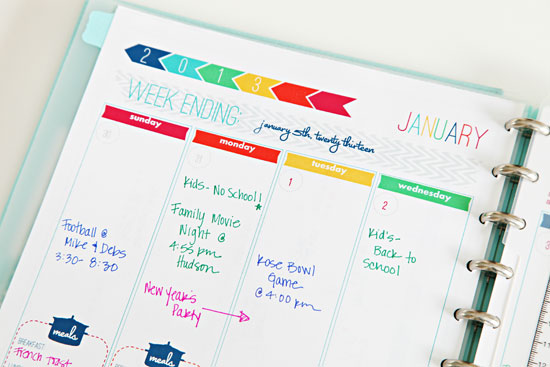 2013
JANUARY
WEEK ENDING:
january 5th, twenty thirteen
sunday
30
Football @
Mike & Debs
3:30- 8:30
meals
BREAKFAST
French Toast
monday
31
Kids- No School!
Family Movie
Night @
4:55 pm
Hudson
New Year's
Party
meals
tuesday
1
Rose Bowl
Game
@ 4:00 pm
wednesday
2
Kid's-
Back to
School